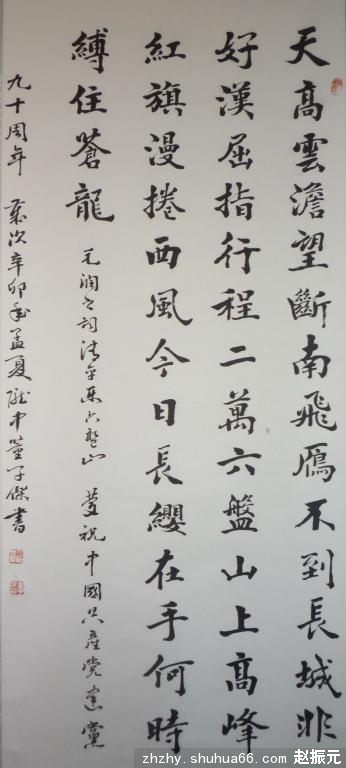 天高雲澹望斷南飛鴈不到長城非
好漢屈指行程二萬六盤山上高峰
紅旗漫捲西風今日長纓在手何時
縛住蒼龍 毛潤之詞清平樂六盤山 慶祝中國共產党建黨
九十周年 歲次辛卯年孟夏陇中董子傑書
zhzhy.shuhua66.com 赵振元